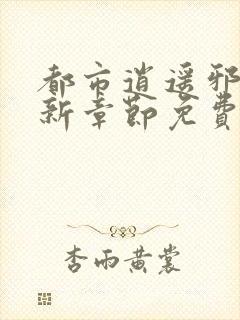 都市逍遥邪
新章節免費
杏雨黄裳